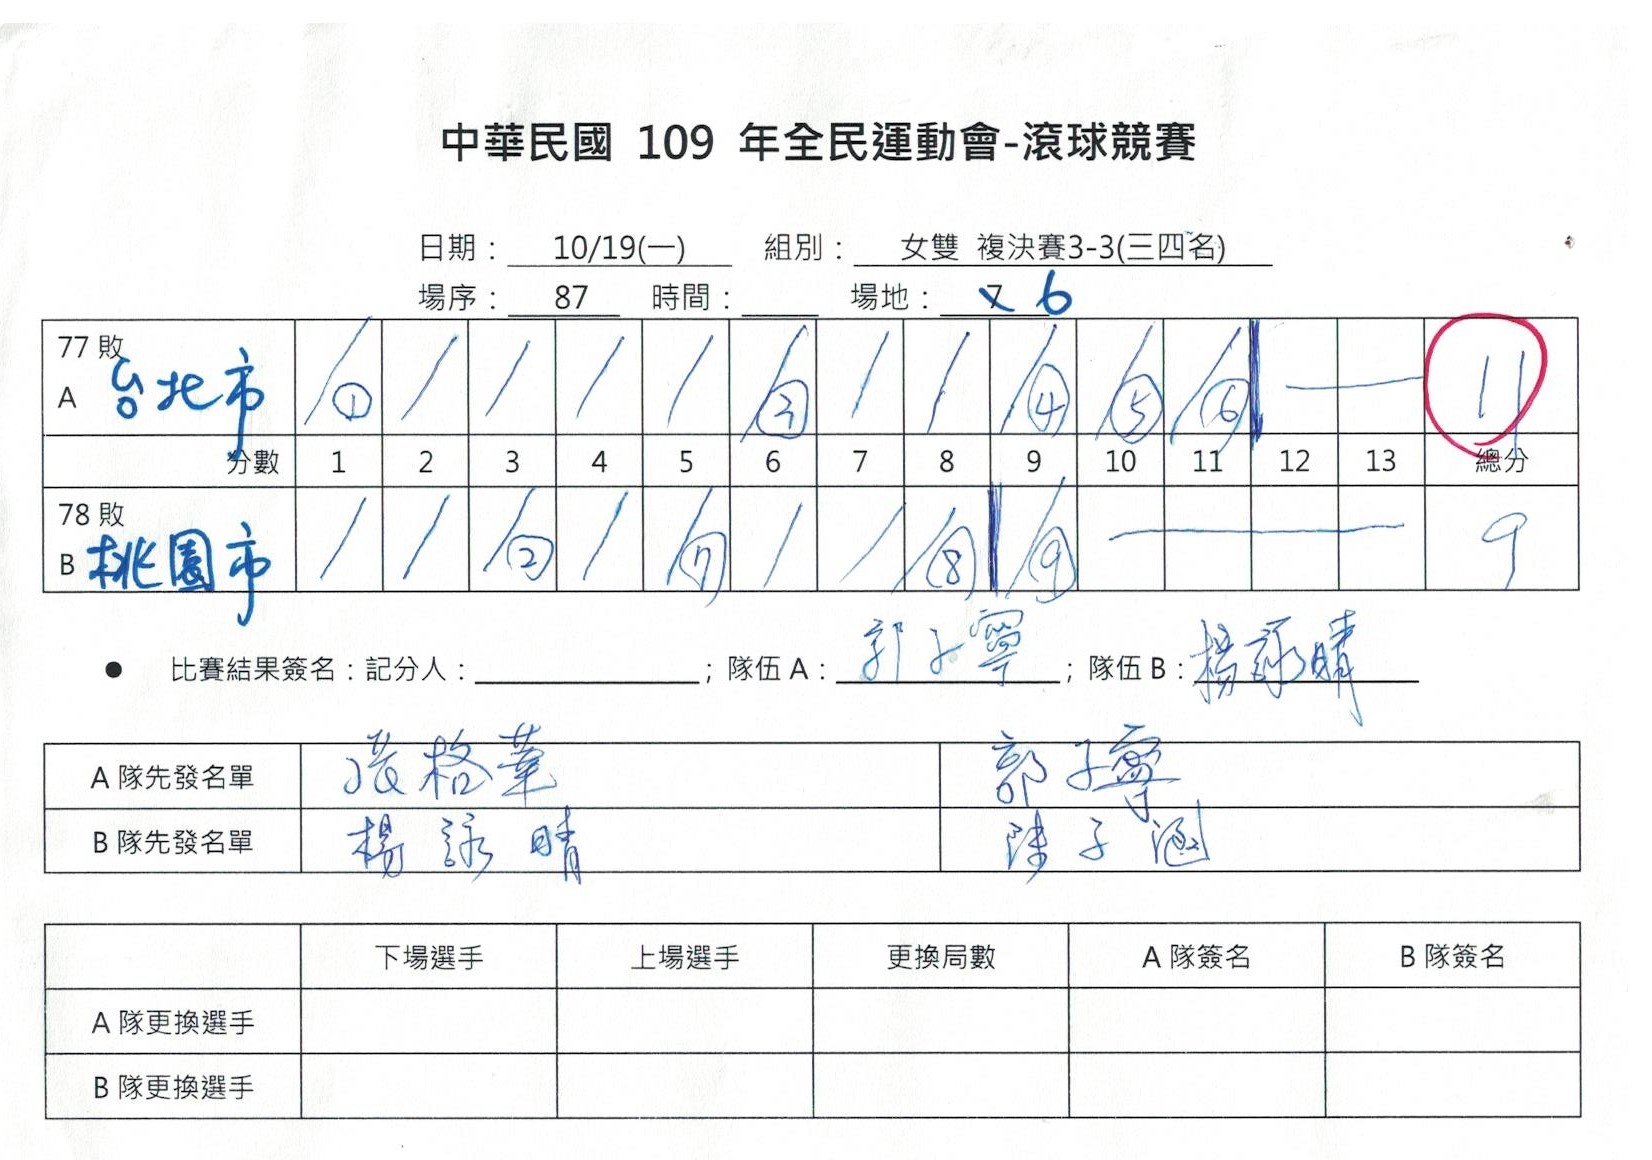 中華民國 109 年全民運動會-滾球競賽
日期： 10/19(一) 組別： 女雙 複決賽3-3(三四名)
場序： 87 時間： 場地： 7 6
77 敗
A 台北市 / ① / / / / / ② / / / ④ / ⑤ / ⑥ — 11
分數 1 2 3 4 5 6 7 8 9 10 11 12 13 總分
78 敗
B 桃園市 / / / ② / / / / / ⑧ / ⑨ — 9
● 比賽結果簽名：記分人： ；隊伍 A： 郭子寧 ；隊伍 B： 楊詠晴
A 隊先發名單 張格華 郭子寧
B 隊先發名單 楊詠晴 陳子涵
下場選手 上場選手 更換局數 A 隊簽名 B 隊簽名
A 隊更換選手
B 隊更換選手